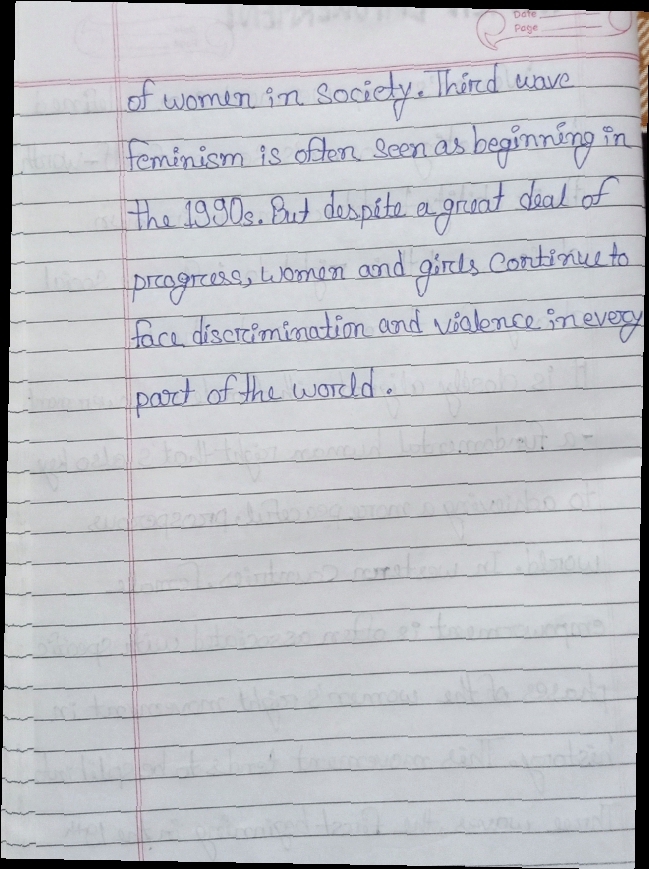 Date
Page
of women in society. Third wave
feminism is often seen as beginning in
the 1990s. But despite a great deal of
progress, women and girls continue to
face discrimination and violence in every
part of the world.